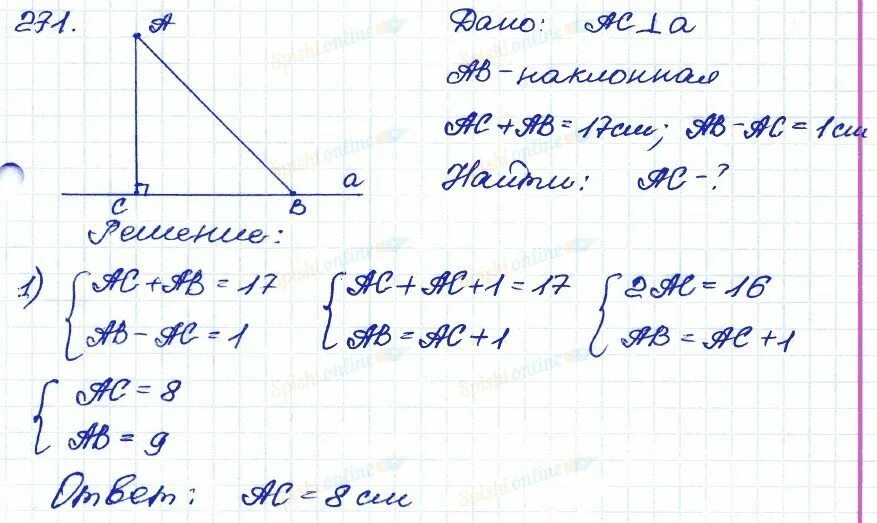 271.
A
C
B
a
Дано: AC⊥a
AB - наклонная
AC + AB = 17 см; AB - AC = 1 см
Найти: AC - ?
Решение:
1) { AC + AB = 17 { AC + AC + 1 = 17 { 2AC = 16
AB - AC = 1 AB = AC + 1 AB = AC + 1
{ AC = 8
AB = 9
Ответ: AC = 8 см
Spishi.online